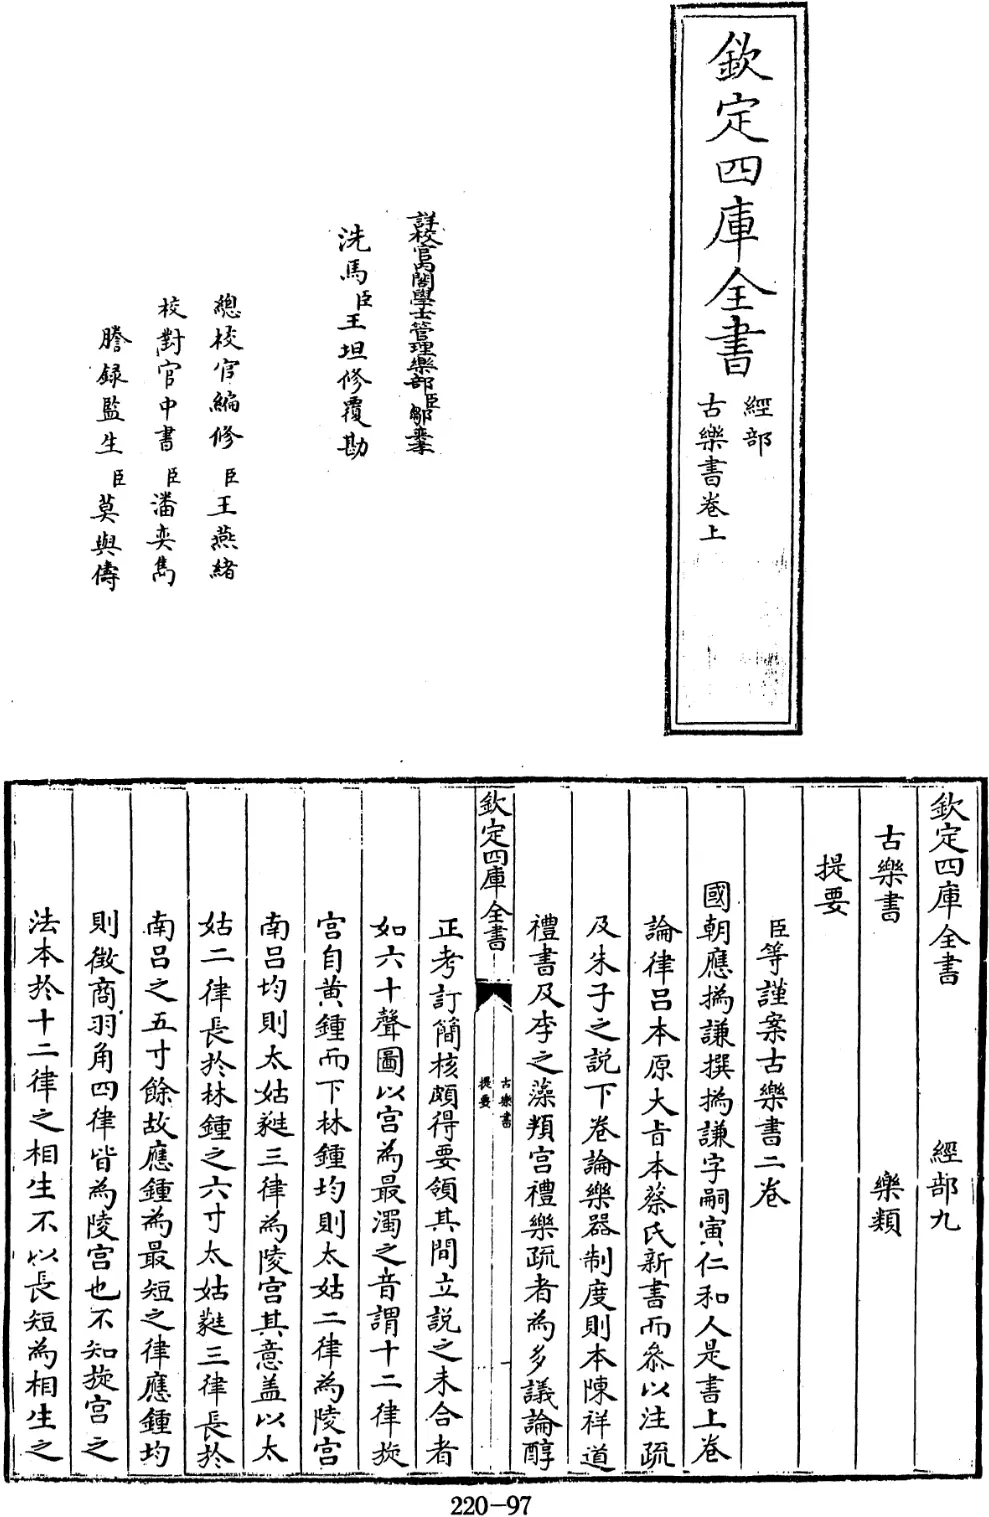 欽定四庫全書
經部
古樂書卷上
詳校官內閣學士管理樂部臣鄒奕孝
洗馬臣王坦修覆勘
總校官編修臣王燕緒
校對官中書臣潘奕雋
謄錄監生臣莫與儔
欽定四庫全書 經部九
古樂書 樂類
提要
臣等謹案古樂書二卷
國朝應撝謙撰撝謙字嗣寅仁和人是書上卷
論律呂本原大㫖本蔡氏新書而叅以注疏
及朱子之說下卷論樂器制度則本陳祥道
禮書及李之藻頖宮禮樂疏者為多議論醇
欽定四庫全書
古樂書
提要
一
正考訂簡核頗得要領其間立說之未合者
如六十聲圖以宮為最濁之音謂十二律旋
宮自黃鍾而下林鍾均則太姑二律為陵宮
南呂均則太姑蕤三律為陵宮其意盖以太
姑二律長於林鍾之六寸太姑蕤三律長於
南呂之五寸餘故應鍾為最短之律應鍾均
則徵商羽角四律皆為陵宮也不知旋宮之
法本於十二律之相生不以長短為相生之
220-97